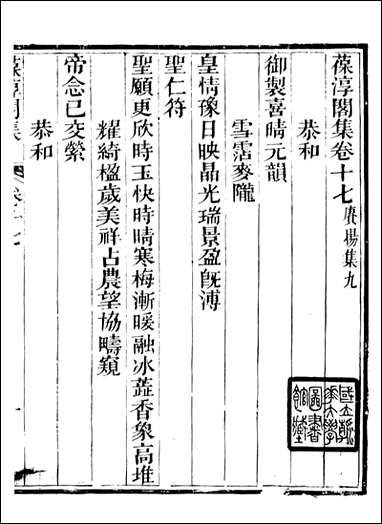 葆淳閣集卷十七 賡揚集九
恭和
御製喜晴元韻
雪霑麥隴
皇情豫日映晶光瑞景盈旣溥
聖仁符
聖願更欣時玉快時晴寒梅漸暖融冰蕋香象高堆
耀綺楹歲美祥占農望協疇窺
帝念已交縈
恭和
葆淳閣集 卷十七
國立
大學
圖書
館藏